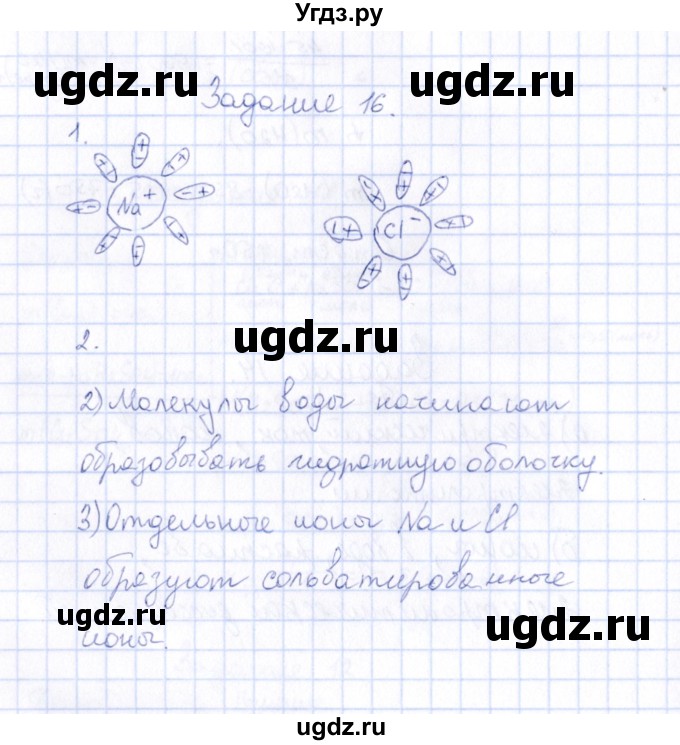 Угдз.ру
ugdz.ru ugdz.ru
Задание 16.
1.
Na+
Cl-
ugdz.ru
2.
2) Молекулы воды начинают
образовывать гидратную оболочку.
3) Отдельные ионы Na и Cl
образуют сольватированные
ugdz.ru ugdz.ru
ионы.
ugdz.ru